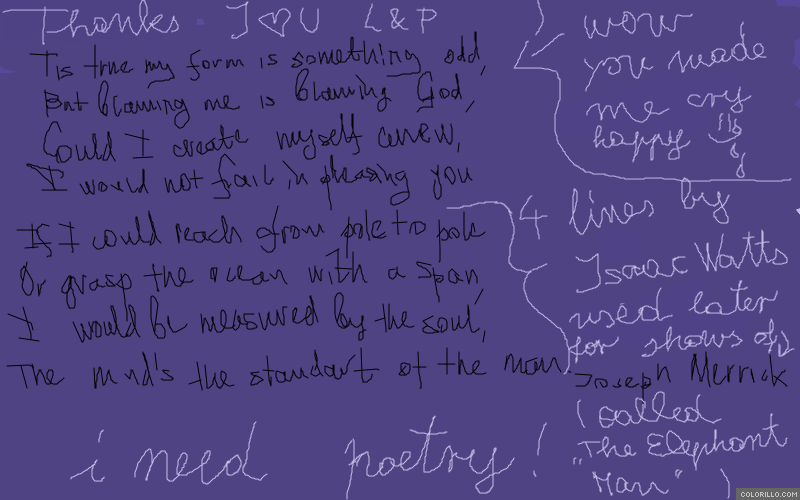 Thanks I ♡ U L & P
Tis true my form is something odd,
But blaming me is blaming God,
Could I create myself anew,
I would not fail in pleasing you
If I could reach from pole to pole
Or grasp the ocean with a span,
I would be measured by the soul,
The mind's the standart of the man.
wow
you made
me cry
happy
4 lines by
Isaac Watts
used later
for shows of
Joseph Merrick
( called
"The Elephant
Man" )
i need poetry!
COLORILLO.COM